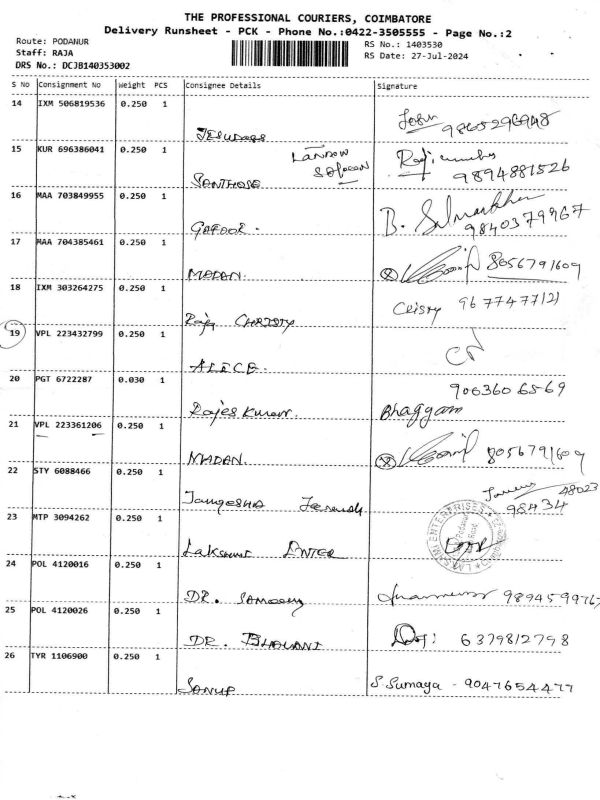 THE PROFESSIONAL COURIERS, COIMBATORE
Delivery Runsheet - PCK - Phone No.:0422-3505555 - Page No.:2
Route: PODANUR
RS No.: 1403530
Staff: RAJA
RS Date: 27-Jul-2024
DRS No.: DCJB140353002
S No Consignment No Weight PCS Consignee Details Signature
14 IXM 506819536 0.250 1
JESUDASS
15 KUR 696386041 0.250 1
SANTHOSE 9894881526
16 MAA 703849955 0.250 1
GAFOOR. B. 9840379967
17 MAA 704385461 0.250 1
MADAN. 8056791609
18 IXM 303264275 0.250 1
Raj CHRISTY Crisry 9677477121
19 VPL 223432799 0.250 1
ALICE.
20 PGT 6722287 0.030 1 906360 6569
Rajes Kumar. Bhaggam
21 VPL 223361206 0.250 1
MADAN. 8056791609
22 STY 6088466 0.250 1
48023
98434
23 MTP 3094262 0.250 1
LAKSHMI ENTERPRISES
Lakshmi ENTER
24 POL 4120016 0.250 1
DR.
25 POL 4120026 0.250 1
DR. BHAVANI 6379812798
26 TYR 1106900 0.250 1
SANUP S. Sumaya - 9047654477